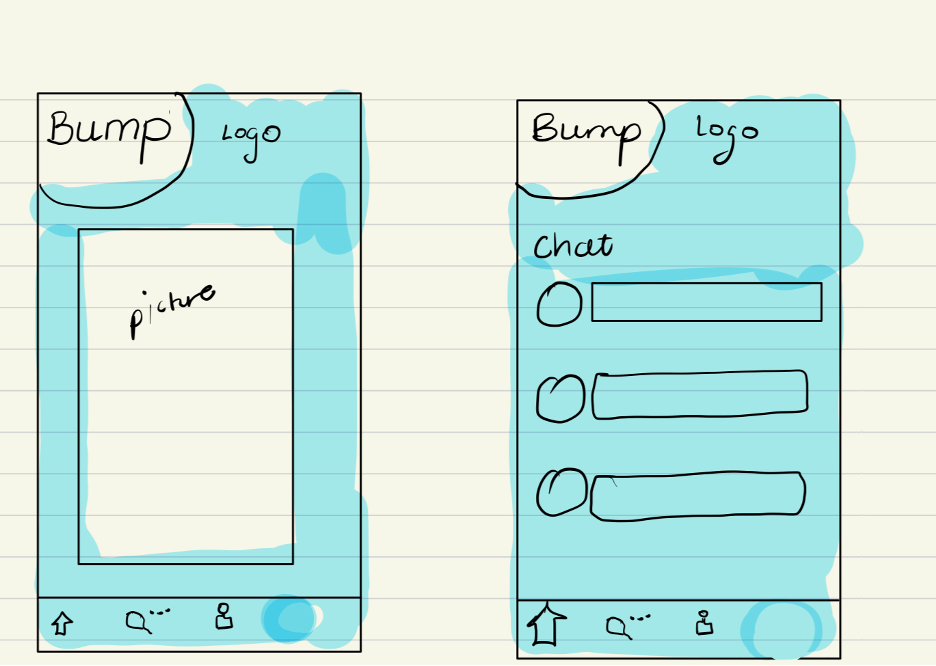 Bump Logo
picture
Bump Logo
Chat